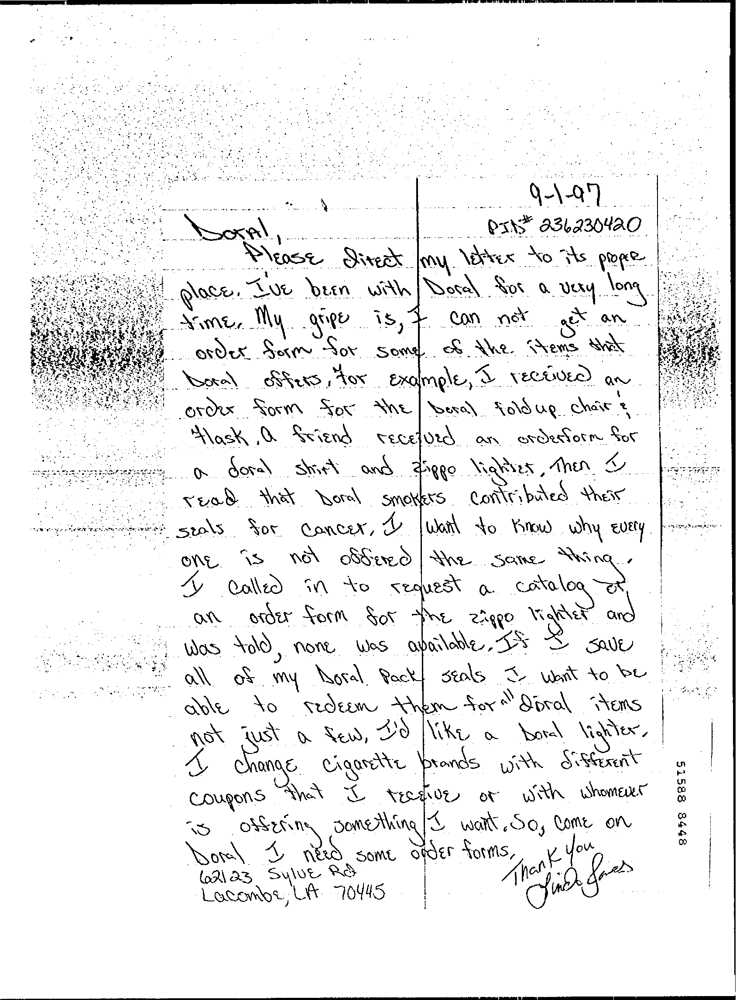 9-1-97
PIN# 236230420
Doral,
Please direct my letter to its proper
place. I've been with Doral for a very long
time. My gripe is, I can not get an
order form for some of the items that
Doral offers, for example, I received an
order form for the Doral foldup chair &
flask, a friend received an orderform for
a doral shirt and zippo lighter, Then I
read that Doral smokers contributed their
seals for cancer. I want to know why every
one is not offered the same thing.
I called in to request a catalog or
an order form for the zippo lighter and
was told, none was available. If I save
all of my Doral Pack seals I want to be
able to redeem them for all Doral items
not just a few, I'd like a Doral lighter.
I change cigarette brands with different
coupons that I receive or with whomever
is offering something I want. So, Come on
Doral I need some order forms.
Thank you
62123 Sylve Rd
Lacombe, LA 70445
51588 8448